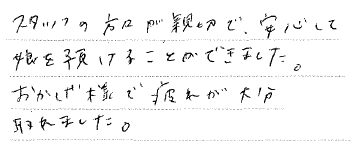 スタッフの方々が親切で、安心して
娘を預けることができました。
おかしや様で疲れが大分
取れました。